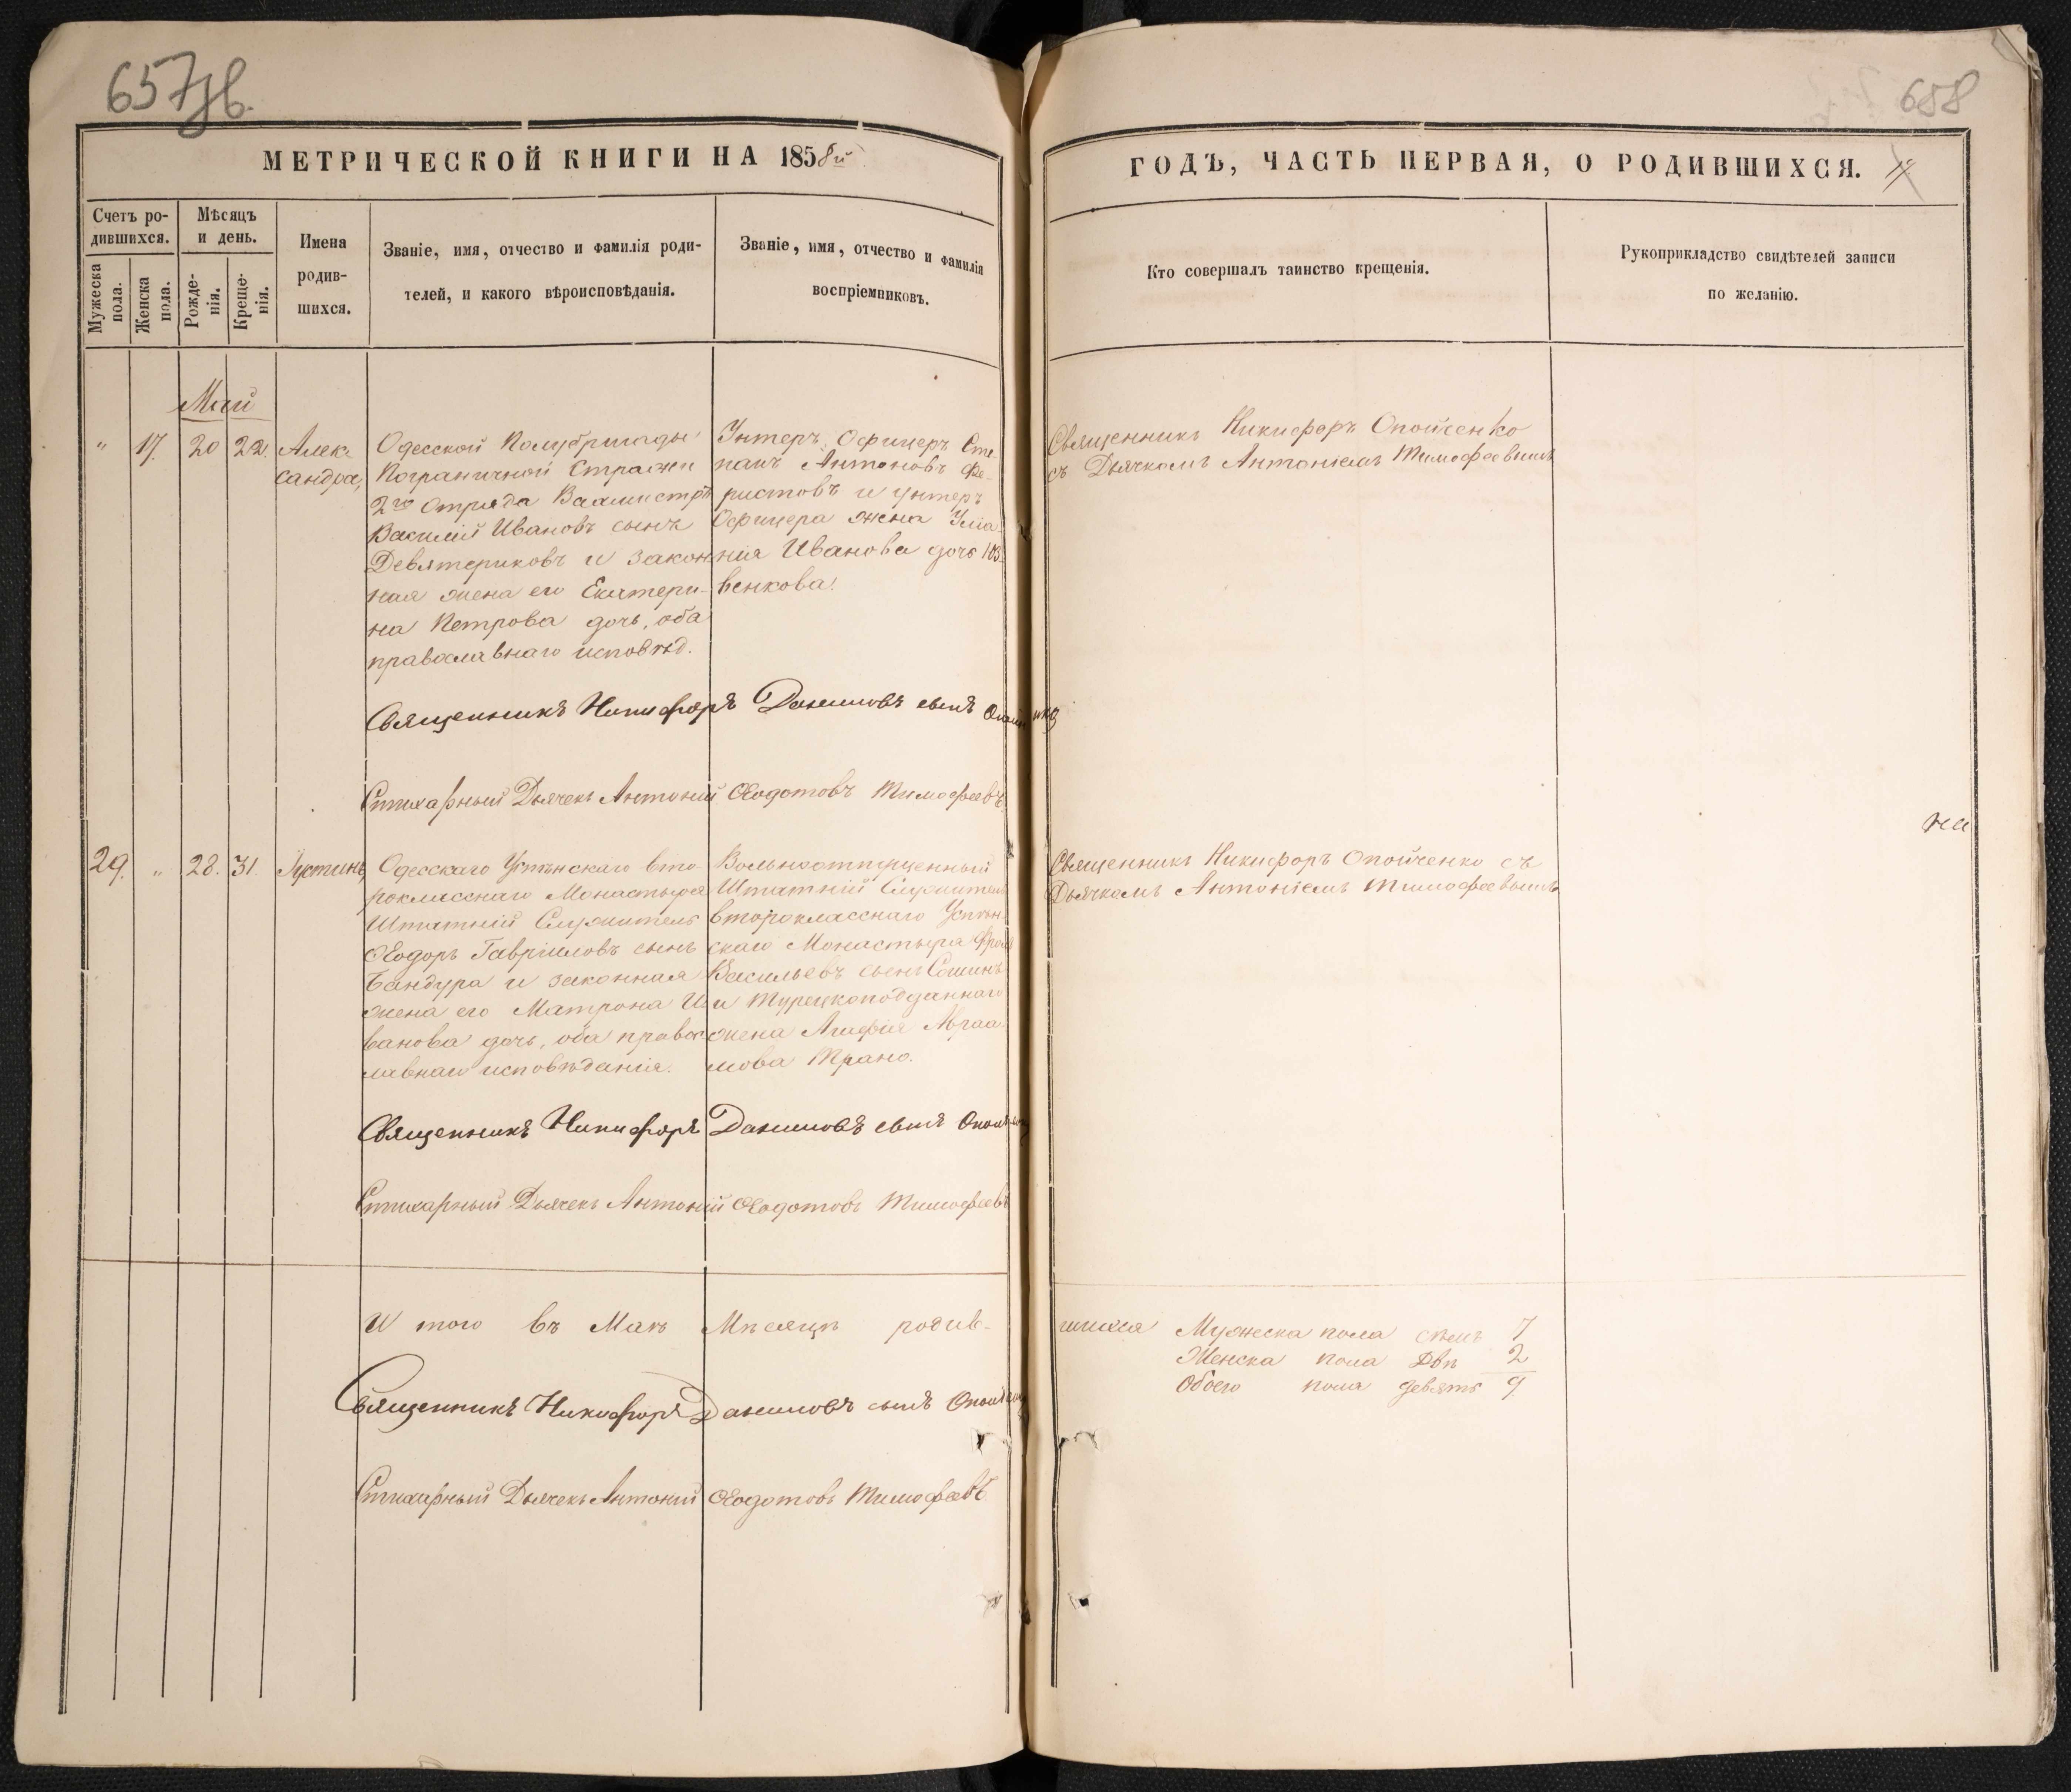 657 об.
658
МЕТРИЧЕСКОЙ КНИГИ НА 1858й
ГОДЪ, ЧАСТЬ ПЕРВАЯ, О РОДИВШИХСЯ.
Счетъ ро-
дившихся.
Мужеска
пола.
Женска
пола.
Мѣсяцъ
и день.
Рожде-
нія.
Креще-
нія.
Имена
родив-
шихся.
Званіе, имя, отчество и фамилія роди-
телей, и какого вѣроисповѣданія.
Званіе, имя, отчество и фамилія
воспріемниковъ.
Кто совершалъ таинство крещенія.
Рукоприкладство свидѣтелей записи
по желанію.
Май
" 17. 20 22.
Алек-
сандра,
Одесской Полубригады
Пограничной Стражи
2го Отряда Вахмистръ
Василій Ивановъ сынъ
Девятериковъ и закон
ная жена его Екатери-
на Петрова дочь, оба
православнаго исповѣд.
Унтеръ Офицеръ Сте-
панъ Антоновъ Фе-
ристовъ и унтеръ
Офицера жена
нія Иванова дочь
венкова.
Священникъ Никифоръ Опойченко
съ Дьячкомъ Антоніемъ Тимофеевымъ
Священникъ Никифоръ Даниловъ сынъ Опойченко
Стихарный Дьячекъ Антоній Ѳеодотовъ Тимофеевъ
на
29. " 28. 31.
Іустинъ,
Одесскаго Успѣнскаго вто-
рокласснаго Монастыря
Штатній Служитель
Ѳеодоръ Гавріиловъ сынъ
Бандура и законная
жена его Матрона И
ванова дочь, оба правос-
лавнаго исповѣданія.
Вольноотпущенный
Штатній Служитель
второкласснаго Успѣн-
скаго Монастыря Фролъ
Васильевъ сынъ Сошинъ
и Турецкоподданнаго
жена Агафія Авраа-
мова Трано.
Священникъ Никифоръ Опойченко съ
Дьячкомъ Антоніемъ Тимофеевымъ
Священникъ Никифоръ Даниловъ сынъ Опойченко
Стихарный Дьячекъ Антоній Ѳеодотовъ Тимофеевъ
И того въ Маѣ Мѣсяцѣ родив-
шихся Мужеска пола семь 7
Женска пола двѣ 2
Обоего пола девять 9
Священникъ Никифоръ Даниловъ сынъ Опойченко
Стихарный Дьячекъ Антоній Ѳеодотовъ Тимофеевъ